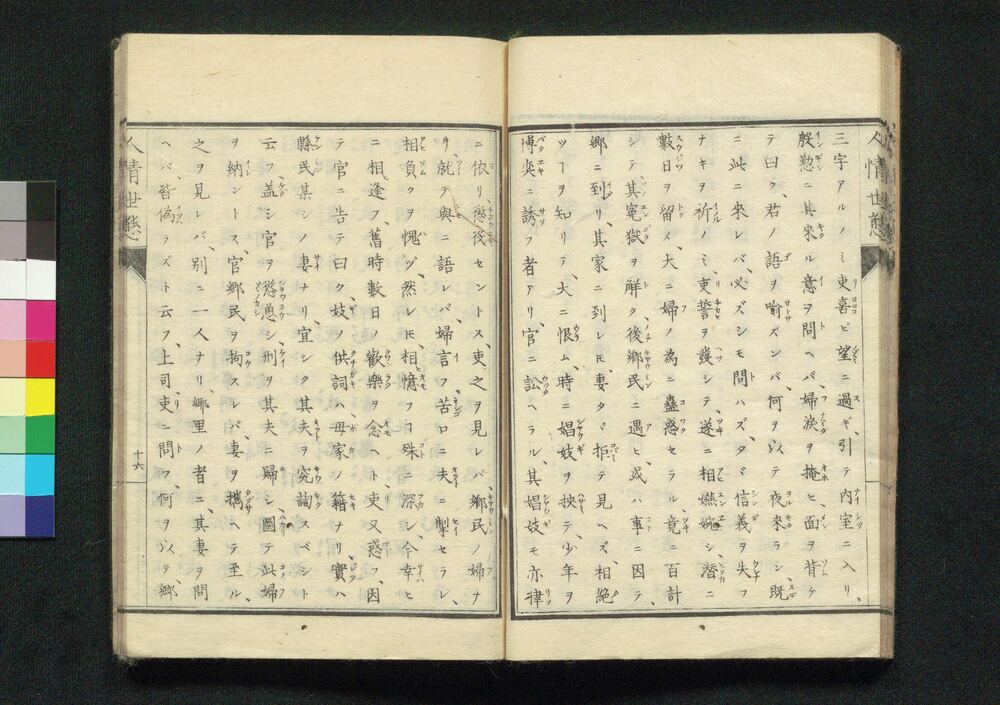 三字アルノミ吏喜ビ望ニ過ギ、引テ内室ニ入リ、
慇懃ニ其來ル意ヲ問ヘバ、婦涙ヲ掩ヒ、面ヲ背ケ
テ曰ク、君ノ語ヲ喩ズンバ、何ヲ以テ夜來ラン、既
ニ此ニ來レバ、必ズシモ問ハズ、タヾ信義ヲ失フ
ナキヲ祈ノミ、吏誓ヲ發シテ、遂ニ相嬿婉シ、潜ニ
數日ヲ留メ、大ニ婦ノ為ニ蠱惑セラル、竟ニ百計
シテ、其冤獄ヲ解ク、後郷民ニ遇ヒ、或ハ事ニ因テ、
郷ニ到リ、其家ニ到レ𪜈、妻タヾ拒テ見ヘズ、相絶
ツヿヲ知リテ、大ニ恨ム、時ニ娼妓ヲ挾テ、少年ヲ
博奕ニ誘フ者アリ、官ニ訟ヘラル、其娼妓モ亦律
人情世態
ニ依リ懲役セントス、吏之ヲ見レバ、郷民ノ婦ナ
リ、就テ與ニ語レバ、婦言フ、苦ロニ夫ニ掣セラレ、
相負クヲ愧ヅ、然レ𪜈相憶フヿ殊ニ深シ、今幸ヒ
ニ相逢フ、舊時數日ノ歡樂ヲ念ヘト、吏又惑フ、因
テ官ニ告テ曰ク、妓ノ供詞ハ、母家ノ籍ナリ、實ハ
縣民某シノ妻ナリ、宜シク其夫ヲ究詢スベシト
云フ、盖シ官ヲ慫慂シ、刑ヲ其夫ニ歸シ、圖テ此婦
ヲ納ントス、官郷民ヲ拘スレバ、妻ヲ携ヘテ至ル、
之ヲ見レバ、別ニ一人ナリ、郷里ノ者ニ、其妻ヲ問
ヘバ、皆偽ラズト云フ、上司吏ニ問フ、何ヲ以テ郷
人情世態
十六